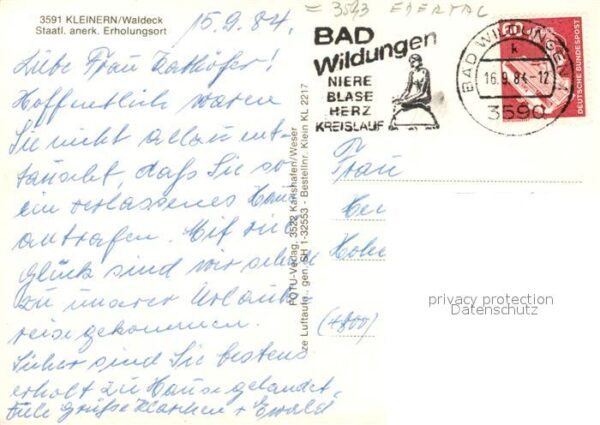 3591 KLEINERN/Waldeck
Staatl. anerk. Erholungsort
15.9.84.
= 3593 EDERTAL
Liebe Frau
Hoffentlich waren
Sie nicht allzu ent-
täuscht, daß Sie so
ein verlassenes Haus
antrafen. Mit viel
Glück sind wir
zu unserer Urlaubs-
reise gekommen.
Sicher sind Sie bestens
erholt zu Hause gelandet.
Viele Grüße Klärchen + Ewald
FOTU-Verlag, 3522 Karlshafen/Weser
ze Luftaufn., gen. SH 1-32553 - Bestellnr. Klein KL 2217
BAD
Wildungen
NIERE
BLASE
HERZ
KREISLAUF
BAD WILDUNGEN 1
k
16.9.84-12
3590
DEUTSCHE BUNDESPOST
Frau
(4800)
privacy protection
Datenschutz